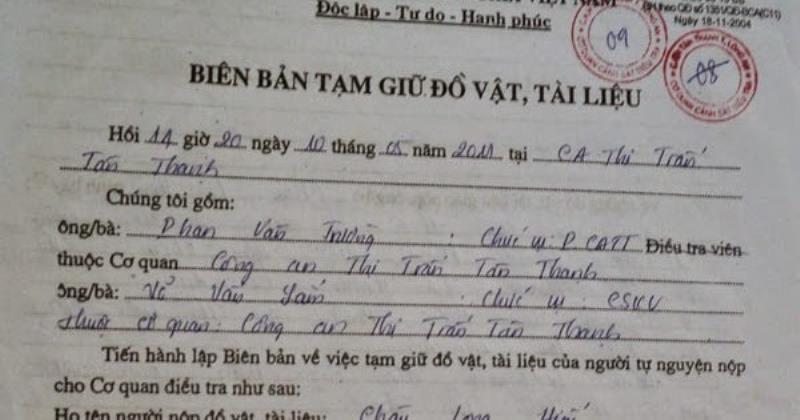 VIỆT NAM
Độc lập - Tự do - Hạnh phúc
BH theo QĐ số 1351/QĐ-BCA(C11)
Ngày 18-11-2004
09
08
BIÊN BẢN TẠM GIỮ ĐỒ VẬT, TÀI LIỆU
Hồi 14 giờ 20 ngày 10 tháng 05 năm 2011 tại CA Thị Trấn
Tân Thạnh
Chúng tôi gồm:
ông/bà: Phan Văn Trường : Chức vụ: P. CATT Điều tra viên
thuộc Cơ quan Công an Thị Trấn Tân Thạnh
ông/bà: Võ Văn : Chức vụ : CSKV
thuộc cơ quan: Công an Thị Trấn Tân Thạnh
Tiến hành lập Biên bản về việc tạm giữ đồ vật, tài liệu của người tự nguyện nộp
cho Cơ quan điều tra như sau:
Họ tên người nộp đồ vật, tài liệu: Châu Long